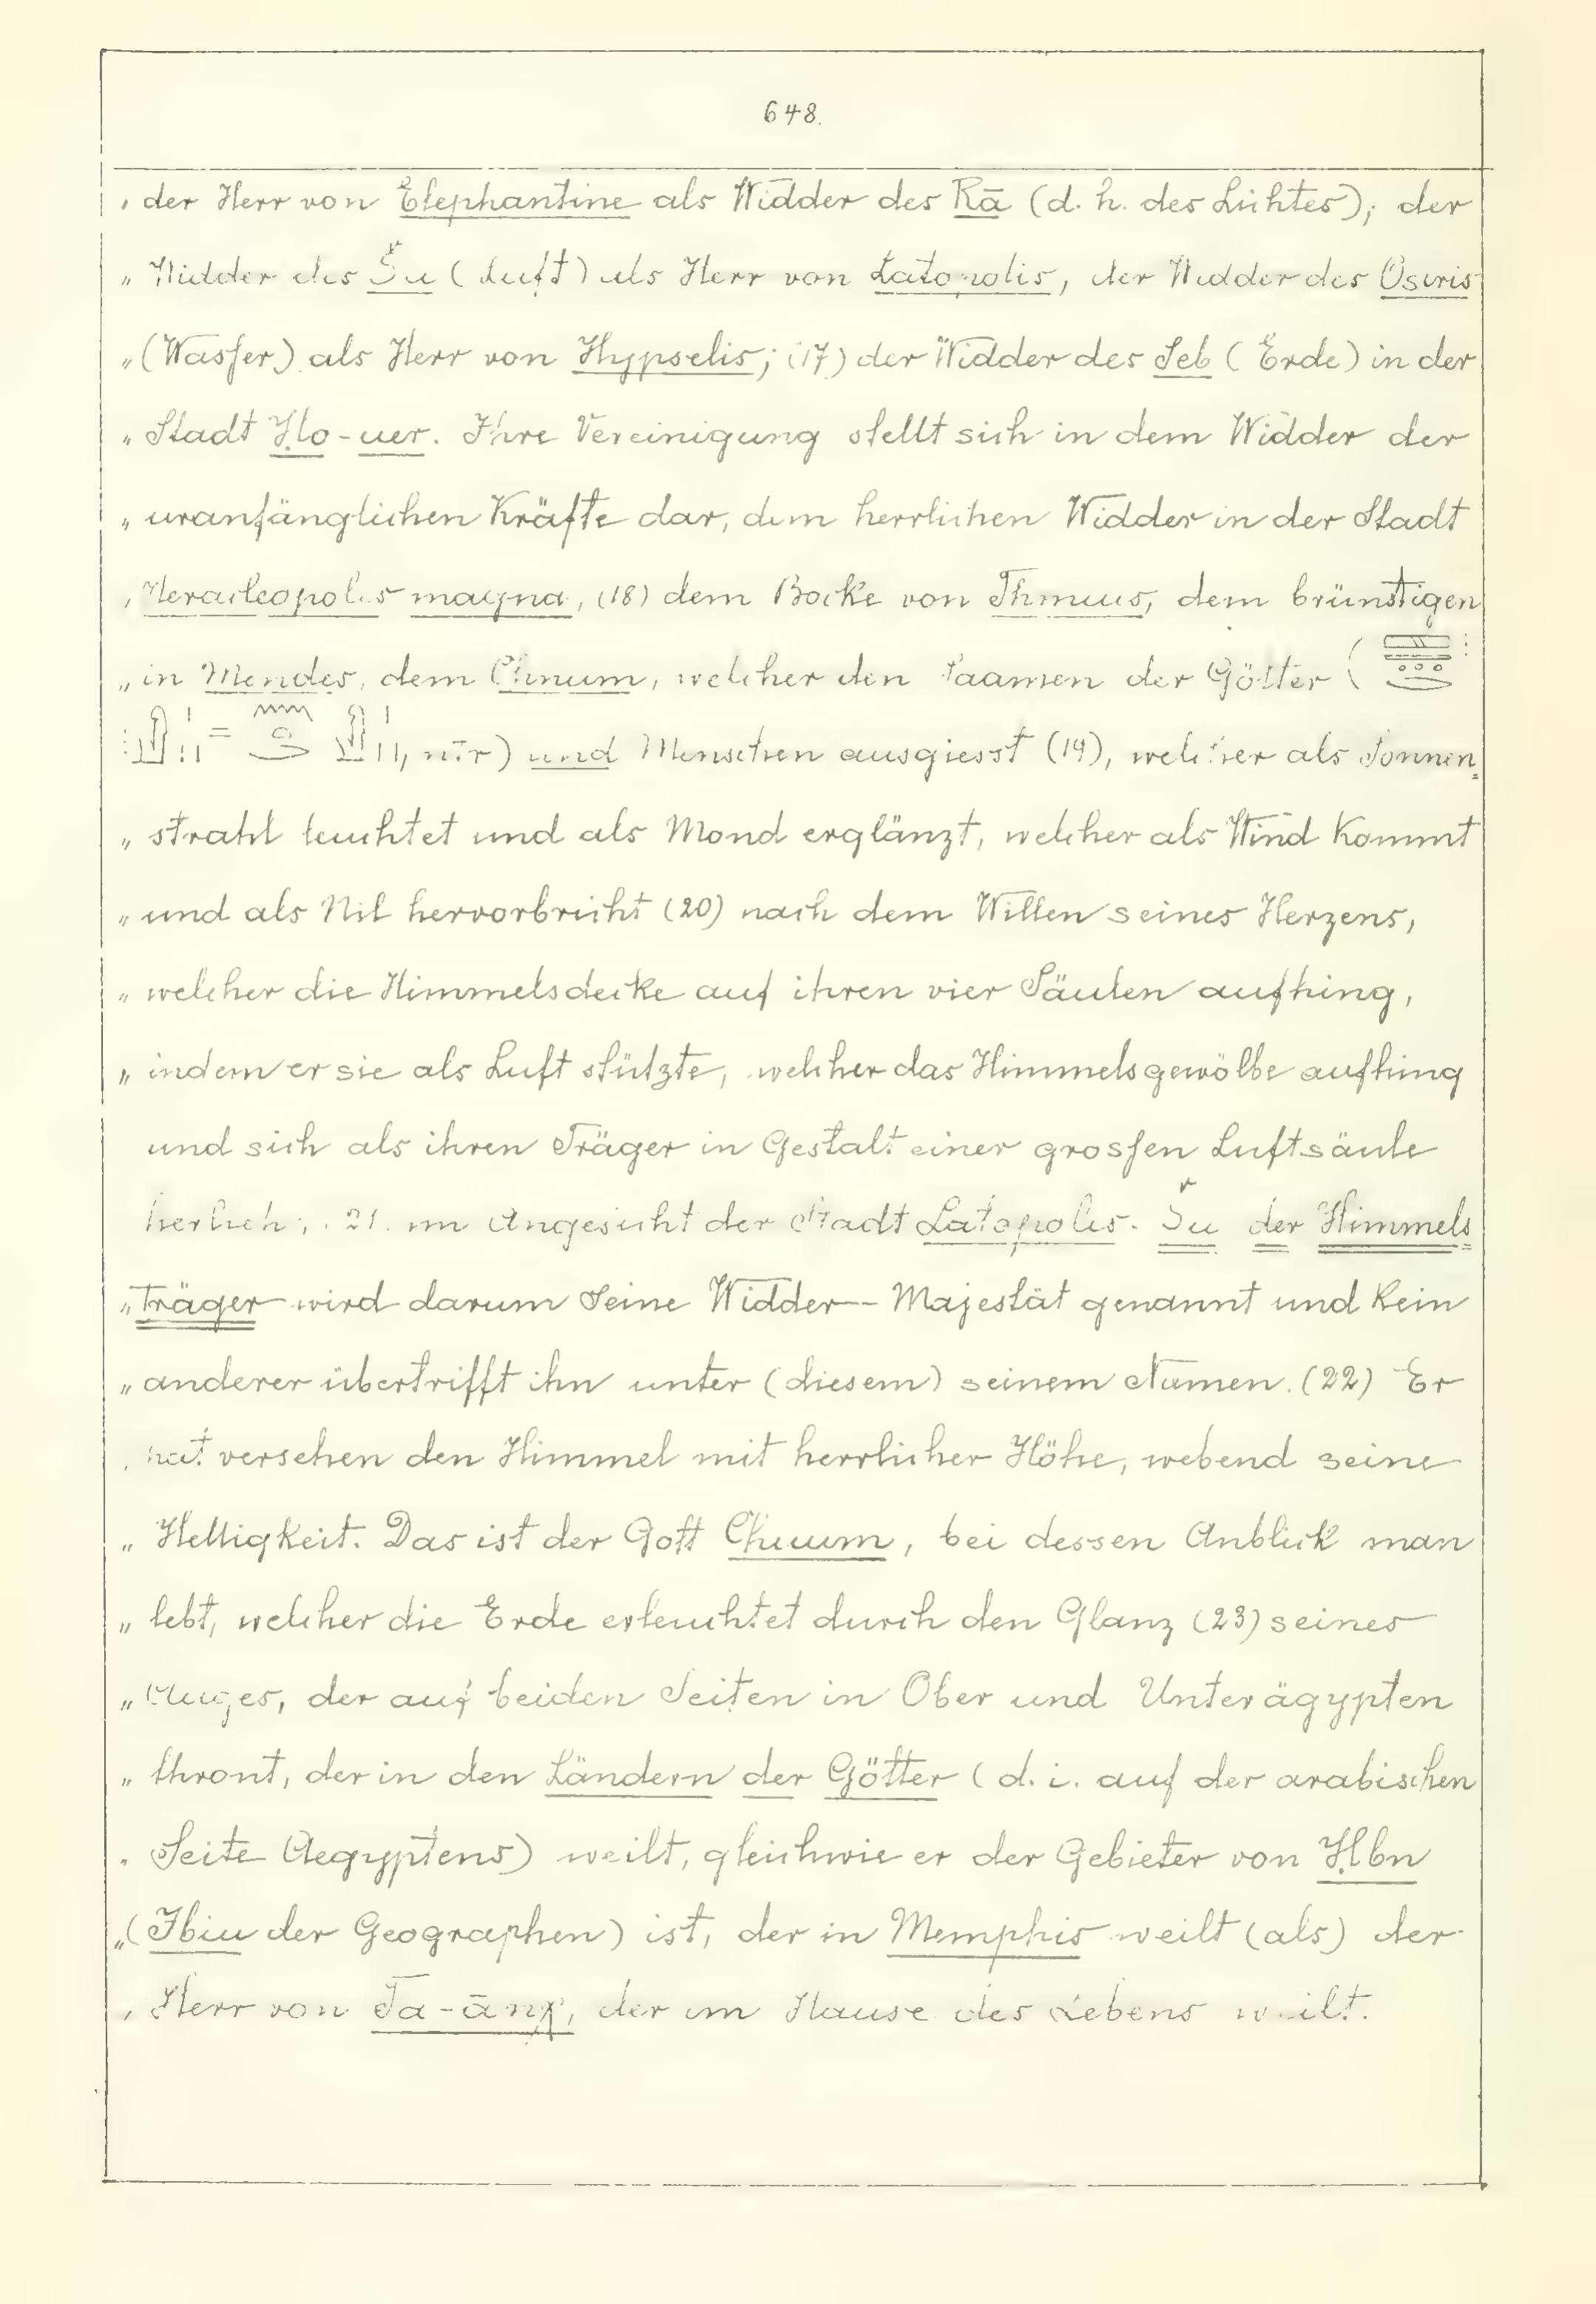 648.
„ der Herr von Elephantine als Widder des Rā (d. h. des Lichtes); der
„ Widder des Šu (Luft) als Herr von Latopolis, der Widder des Osiris
„ (Wasser) als Herr von Hypselis; (17) der Widder des Seb (Erde) in der
„ Stadt Ḥo-uer. Ihre Vereinigung stellt sich in dem Widder der
„ uranfänglichen Kräfte dar, dem herrlichen Widder in der Stadt
„ Heracleopolis magna, (18) dem Bocke von Thmuis, dem brünstigen
„ in Mendes, dem Chnum, welcher den Saamen der Götter (
= , nṯr) und Menschen ausgiesst (19), welcher als Sonnen-
„ strahl leuchtet und als Mond erglänzt, welcher als Wind kommt
„ und als Nil hervorbricht (20) nach dem Willen seines Herzens,
„ welcher die Himmelsdecke auf ihren vier Säulen aufhing,
„ indem er sie als Luft stützte, welcher das Himmelsgewölbe aufhing
und sich als ihren Träger in Gestalt einer grossen Luftsäule
herlieh, 21. im Angesicht der Stadt Latopolis. Šu der Himmels
„ träger wird darum Seine Widder-Majestät genannt und kein
„ anderer übertrifft ihn unter (diesem) seinem Namen. (22) Er
„ hat versehen den Himmel mit herrlicher Höhe, webend seine
„ Helligkeit. Das ist der Gott Chnum, bei dessen Anblick man
„ lebt, welcher die Erde erleuchtet durch den Glanz (23) seines
„ Auges, der auf beiden Seiten in Ober und Unterägypten
„ thront, der in den Ländern der Götter (d. i. auf der arabischen
„ Seite Aegyptens) weilt, gleichwie er der Gebieter von Ḥbn
„ (Ibiu der Geographen) ist, der in Memphis weilt (als) der
„ Herr von Ta-ānχ, der im Hause des Lebens weilt.